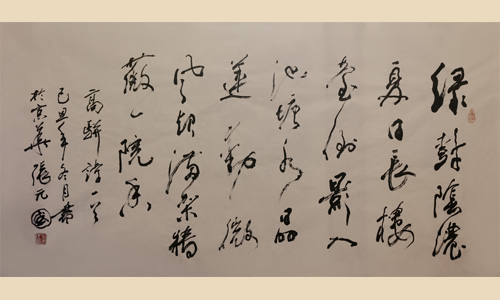 绿树陰濃
夏日長樓
臺倒影入
池塘水晶
簾動微
风起满架墙
薇一院香
高駢詩一首
己丑年冬月書
於京華張元